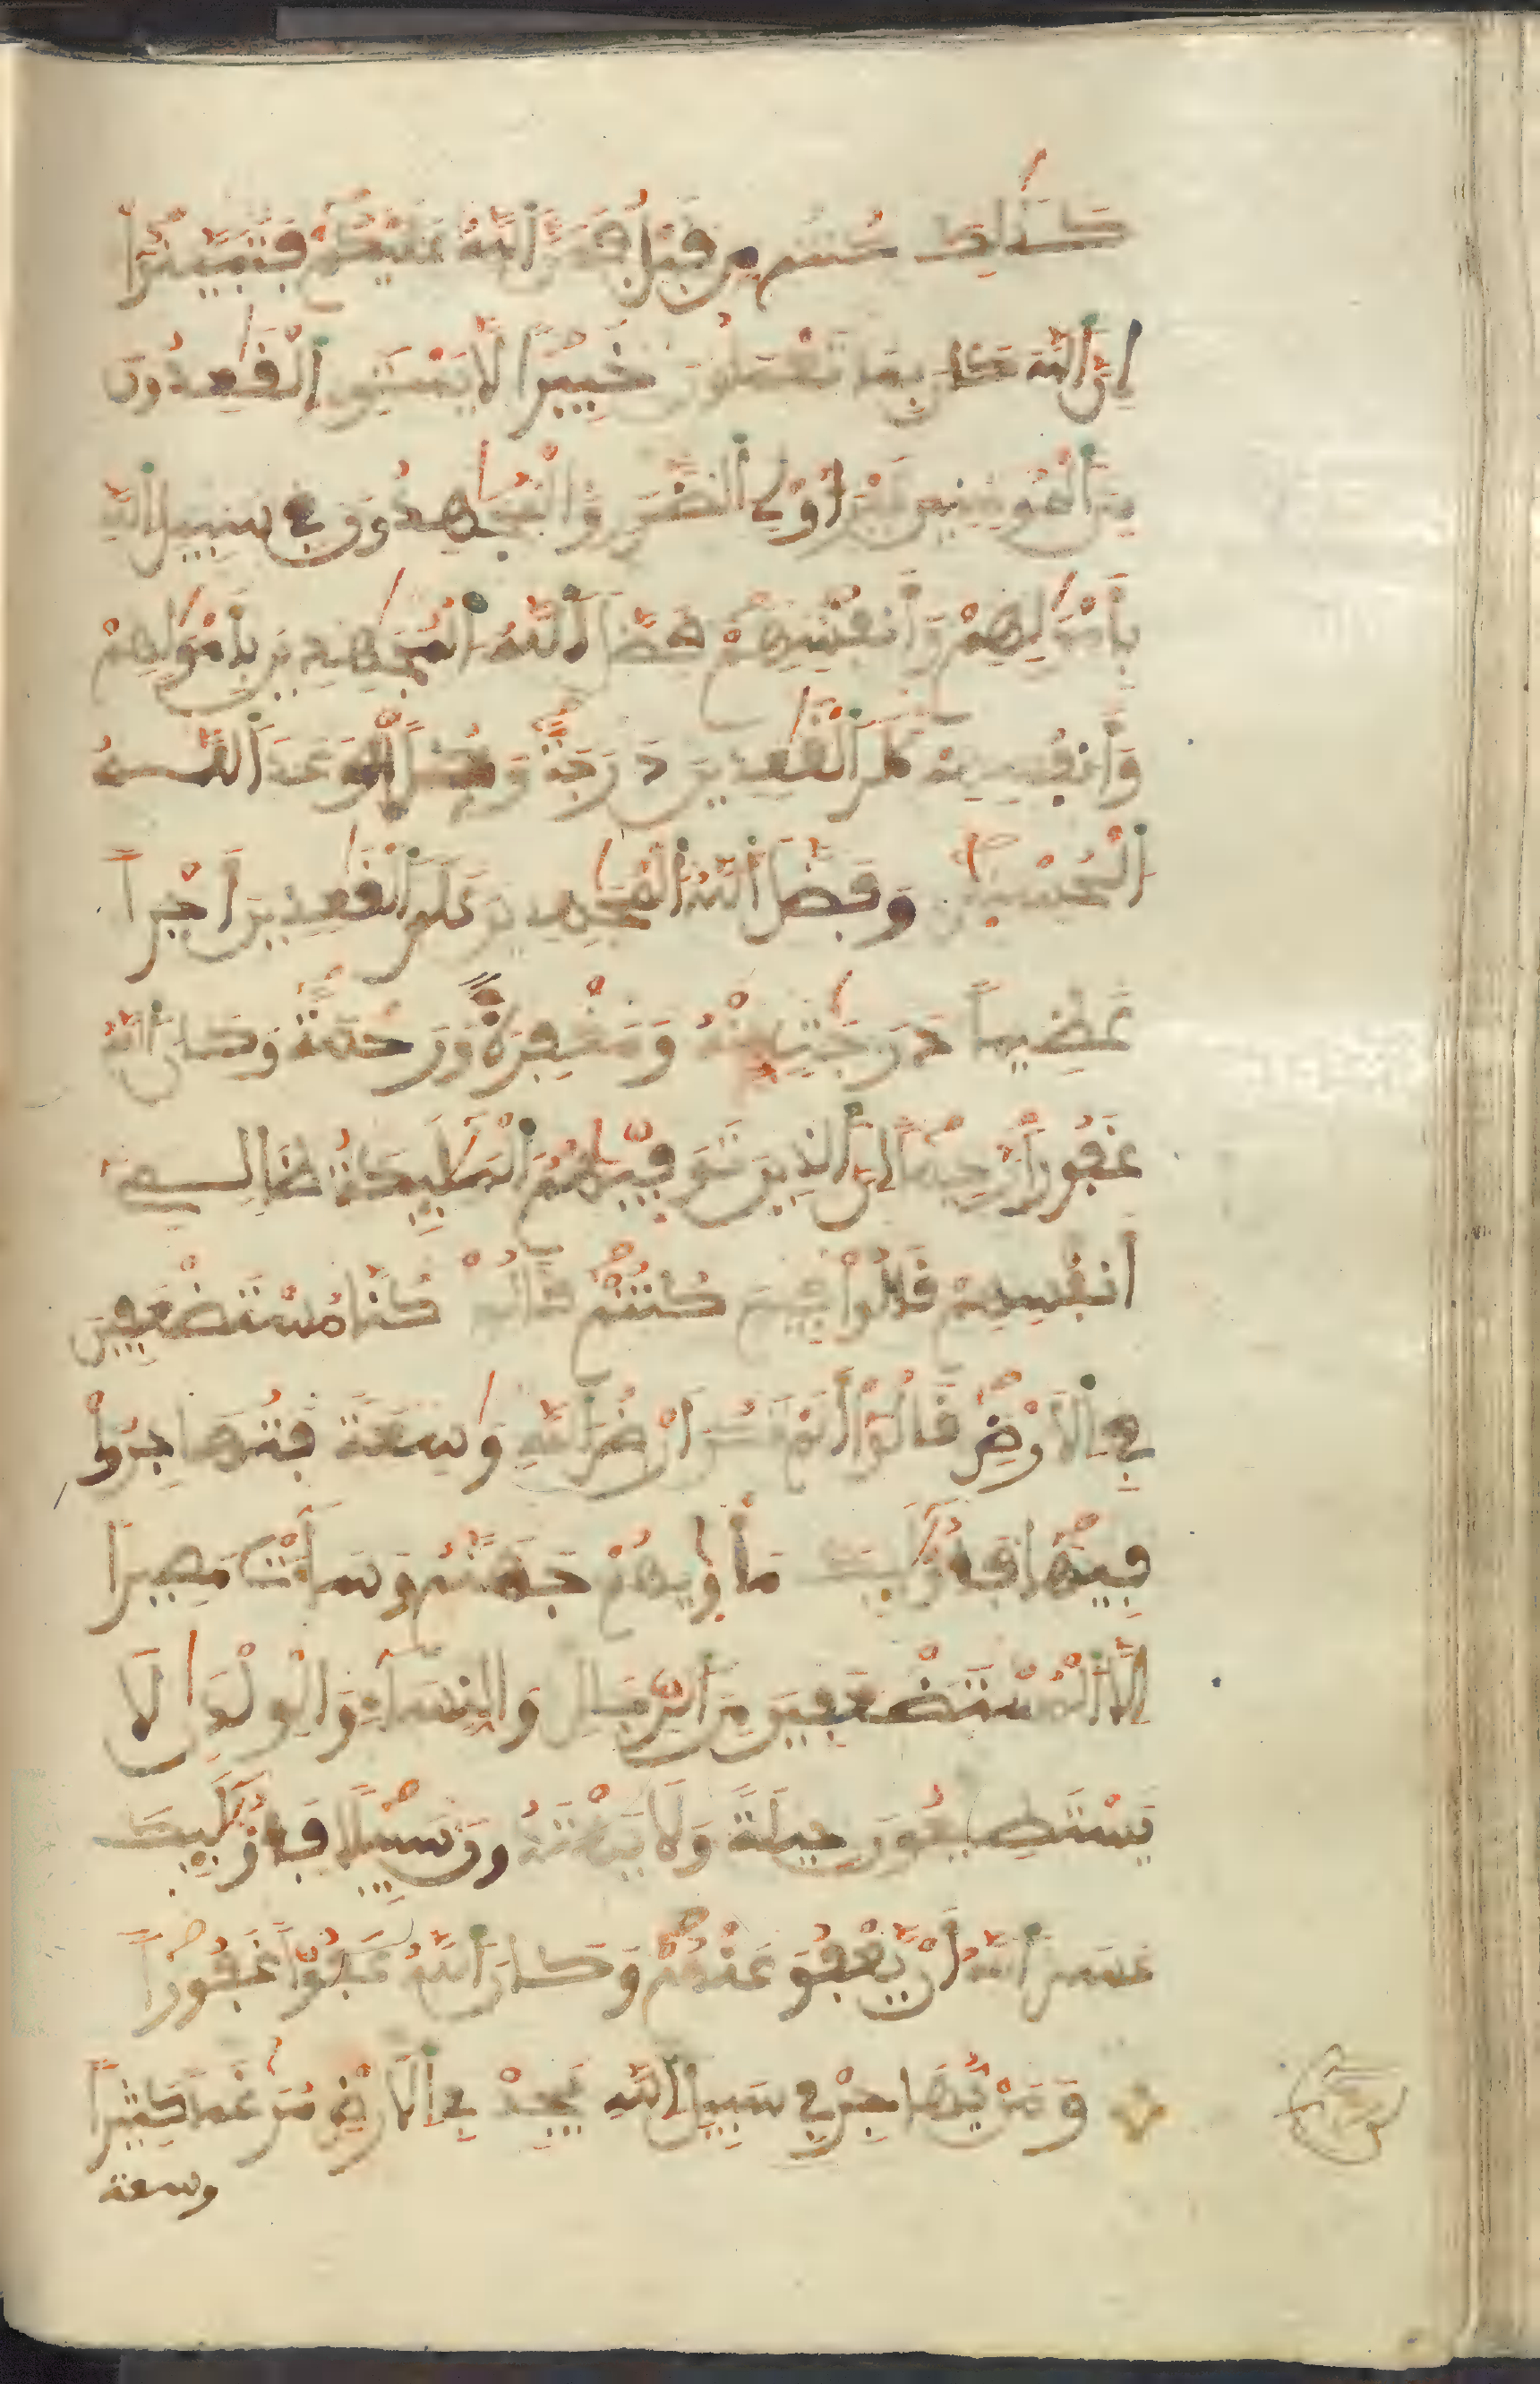 كَذَٰلِكَ كُنتُم مِّن قَبْلُ فَمَنَّ اَللَّهُ عَلَيْكُمْ فَتَبَيَّنُوٓاْ
إِنَّ اَللَّهَ كَانَ بِمَا تَعْمَلُونَ خَبِيرًا لَّا يَسْتَوِي اِلْقَٰعِدُونَ
مِنَ اَلْمُومِنِينَ غَيْرَ أُوْلِي اِلضَّرَرِ وَالْمُجَٰهِدُونَ فِي سَبِيلِ اِللَّهِ
بِأَمْوَٰلِهِمْ وَأَنفُسِهِمْ فَضَّلَ اَللَّهُ اُلْمُجَٰهِدِينَ بِأَمْوَٰلِهِمْ
وَأَنفُسِهِمْ عَلَى اَلْقَٰعِدِينَ دَرَجَةً وَكُلًّا وَعَدَ اَللَّهُ
اُلْحُسْنَىٰ وَفَضَّلَ اَللَّهُ اُلْمُجَٰهِدِينَ عَلَى اَلْقَٰعِدِينَ أَجْراً
عَظِيماً دَرَجَٰتٍ مِّنْهُ وَمَغْفِرَةً وَرَحْمَةً وَكَانَ اَللَّهُ
غَفُوراً رَّحِيماً إِنَّ اَلذِينَ تَوَفَّيٰهُمُ اُلْمَلَٰٓئِكَةُ ظَالِمِےٓ
أَنفُسِهِمْ قَالُواْ فِيمَ كُنتُمْ قَالُواْ كُنَّا مُسْتَضْعَفِينَ
فِي اِلَارْضِ قَالُوٓاْ أَلَمْ تَكُنَ اَرْضُ اُللَّهِ وَٰسِعَةً فَتُهَاجِرُواْ
فِيهَا فَأُوْلَٰٓئِكَ مَأْوٜيٰهُمْ جَهَنَّمُ وَسَآءَتْ مَصِيراً
اِلَّا اَلْمُسْتَضْعَفِينَ مِنَ اَلرِّجَالِ وَالنِّسَآءِ وَالْوِلْدَٰنِ لَا
يَسْتَطِيعُونَ حِيلَةً وَلَا يَهْتَدُونَ سَبِيلًا فَأُوْلَٰٓئِكَ
عَسَى اَللَّهُ أَنْ يَّعْفُوَ عَنْهُمْ وَكَانَ اَللَّهُ عَفُوّاً غَفُوراً
وَمَنْ يُّهَاجِرْ فِي سَبِيلِ اِللَّهِ يَجِدْ فِي اِلَارْضِ مُرَٰغَماً كَثِيراً
وسعة